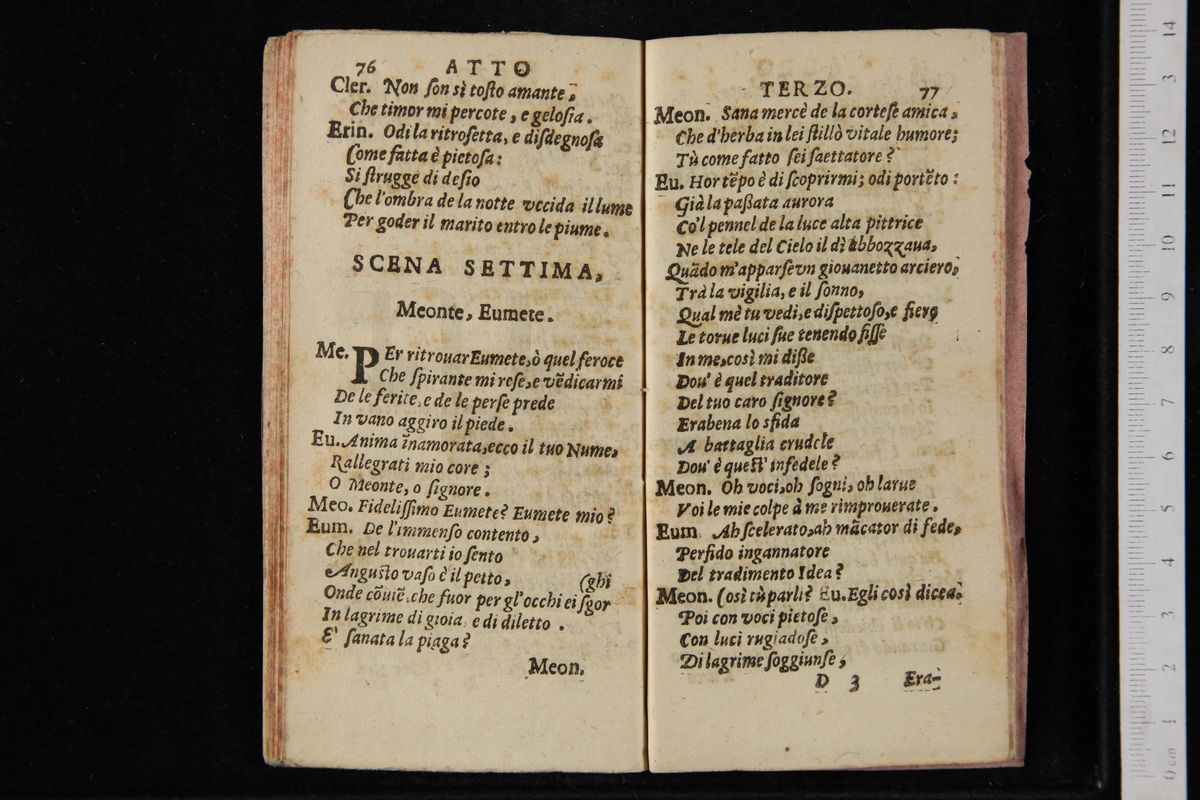 76 ATTO
Cler. Non ſon sì toſto amante,
Che timor mi percote, e geloſia.
Erin. Odi la ritroſetta, e diſdegnoſa
Come fatta è pietoſa:
Si ſtrugge di deſio
Che l'ombra de la notte vccida il lume
Per goder il marito entro le piume.
SCENA SETTIMA,
Meonte, Eumete.
Me. PEr ritrouar Eumete, ò quel feroce
Che ſpirante mi reſe, e vẽdicarmi
De le ferite, e de le perſe prede
In vano aggiro il piede.
Eu. Anima ĩnamorata, ecco il tuo Nume,
Rallegrati mio core;
O Meonte, o ſignore.
Meo. Fideliſſimo Eumete? Eumete mio?
Eum. De l'immenſo contento,
Che nel trouarti io ſento
Anguſto vaſo è il petto, (ghi
Onde cõuiẽ, che fuor per gl'occhi ei ſgor
In lagrime di gioia, e di diletto.
E' ſanata la piaga?
Meon.
TERZO. 77
Meon. Sana mercè de la corteſe amica,
Che d'herba in lei ſtillò vitale humore;
Tù come fatto ſei ſaettatore?
Eu. Hor tẽpo è di ſcoprirmi; odi portẽto:
Già la paßata aurora
Co'l pennel de la luce alta pittrice
Ne le tele del Cielo il dì abbozzaua,
Quãdo m'apparſe vn giouanetto arciero,
Trà la vigilia, e il ſonno,
Qual mè tu vedi, e diſpettoſo, e fiero
Le torue luci ſue tenendo fiſſe
In me, così mi diße
Dou' è quel traditore
Del tuo caro ſignore?
Erabena lo sfida
A battaglia crudele
Dou' è queſt' infedele?
Meon. Oh voci, oh ſogni, oh larue
Voi le mie colpe à me rimprouerate.
Eum. Ah ſcelerato, ah mãcator di fede,
Perfido ingannatore
Del tradimento Idea?
Meon. Così tù parli? Eu. Egli così dicea,
Poi con voci pietoſe,
Con luci rugiadoſe,
Di lagrime ſoggiunſe,
D 3 Era-
14
3
12
11
10
9
8
7
6
5
4
3
2
1
0 cm